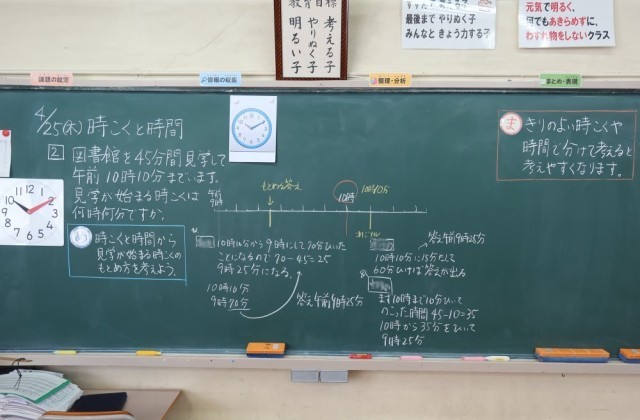 教育目標
考える子
やりぬく子
明るい子
最後まで やりぬく子
みんなと きょう力する子
元気で明るく、
何でもあきらめずに、
わすれ物をしないクラス
課題の設定
情報の収集
整理・分析
まとめ・表現
4/25(木) 時こくと時間
2 図書館を45分間見学して
午前10時10分までいます。
見学が始まる時こくは
何時何分ですか。
午前
9時
もとめる答え
10時
10時10分
め 時こくと時間から
見学が始まる時こくの
もとめ方を考えよう。
ま きりのよい時こくや
時間で分けて考えると
考えやすくなります。
10時10分から9時にして70分ひいた
ことになるので70-45=25
9時25分になる。
10時10分
9時70分
答え午前9時25分
答え午前9時25分
10時10分に15分たして
60分ひけば答えが出る
まず10時まで10分ひいて
のこった時間45-10=35
10時から35分をひいて
9時25分